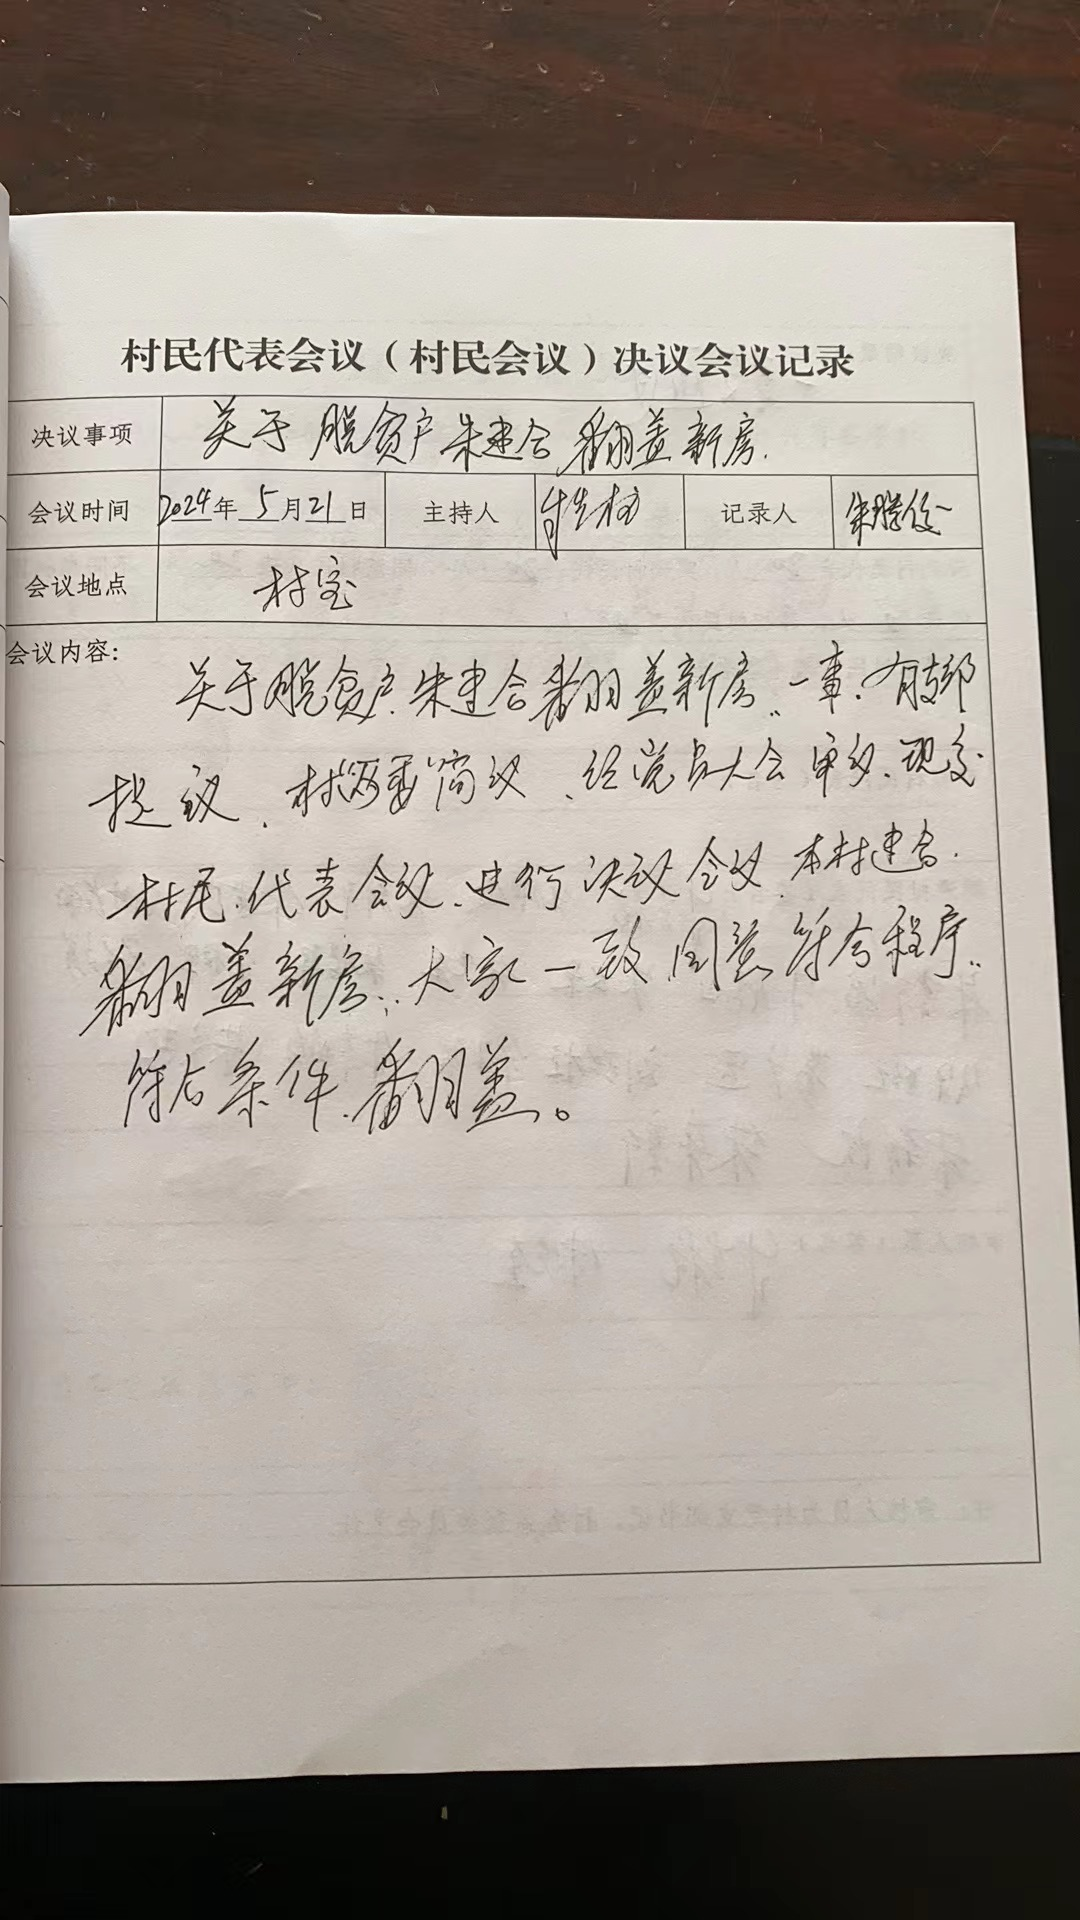 村民代表会议（村民会议）决议会议记录
决议事项 关于脱贫户朱建合翻盖新房.
会议时间 2024年 5月21日 主持人 记录人
会议地点 村室
会议内容：
关于脱贫户朱建合翻盖新房.一事.有支部
提议、村"两委"商议、经党员大会审议、现交
村民代表会议、进行决议会议.本村建合.
翻盖新房.大家一致同意符合程序.
符合条件.翻盖。